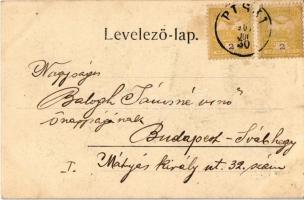 Levelező-lap.
PISKI
30
2
2
Nagyságos
Balogh Jánosné urnő
őnagyságának
Budapest - Svábhegy
I. Mátyás király ut. 32. szám